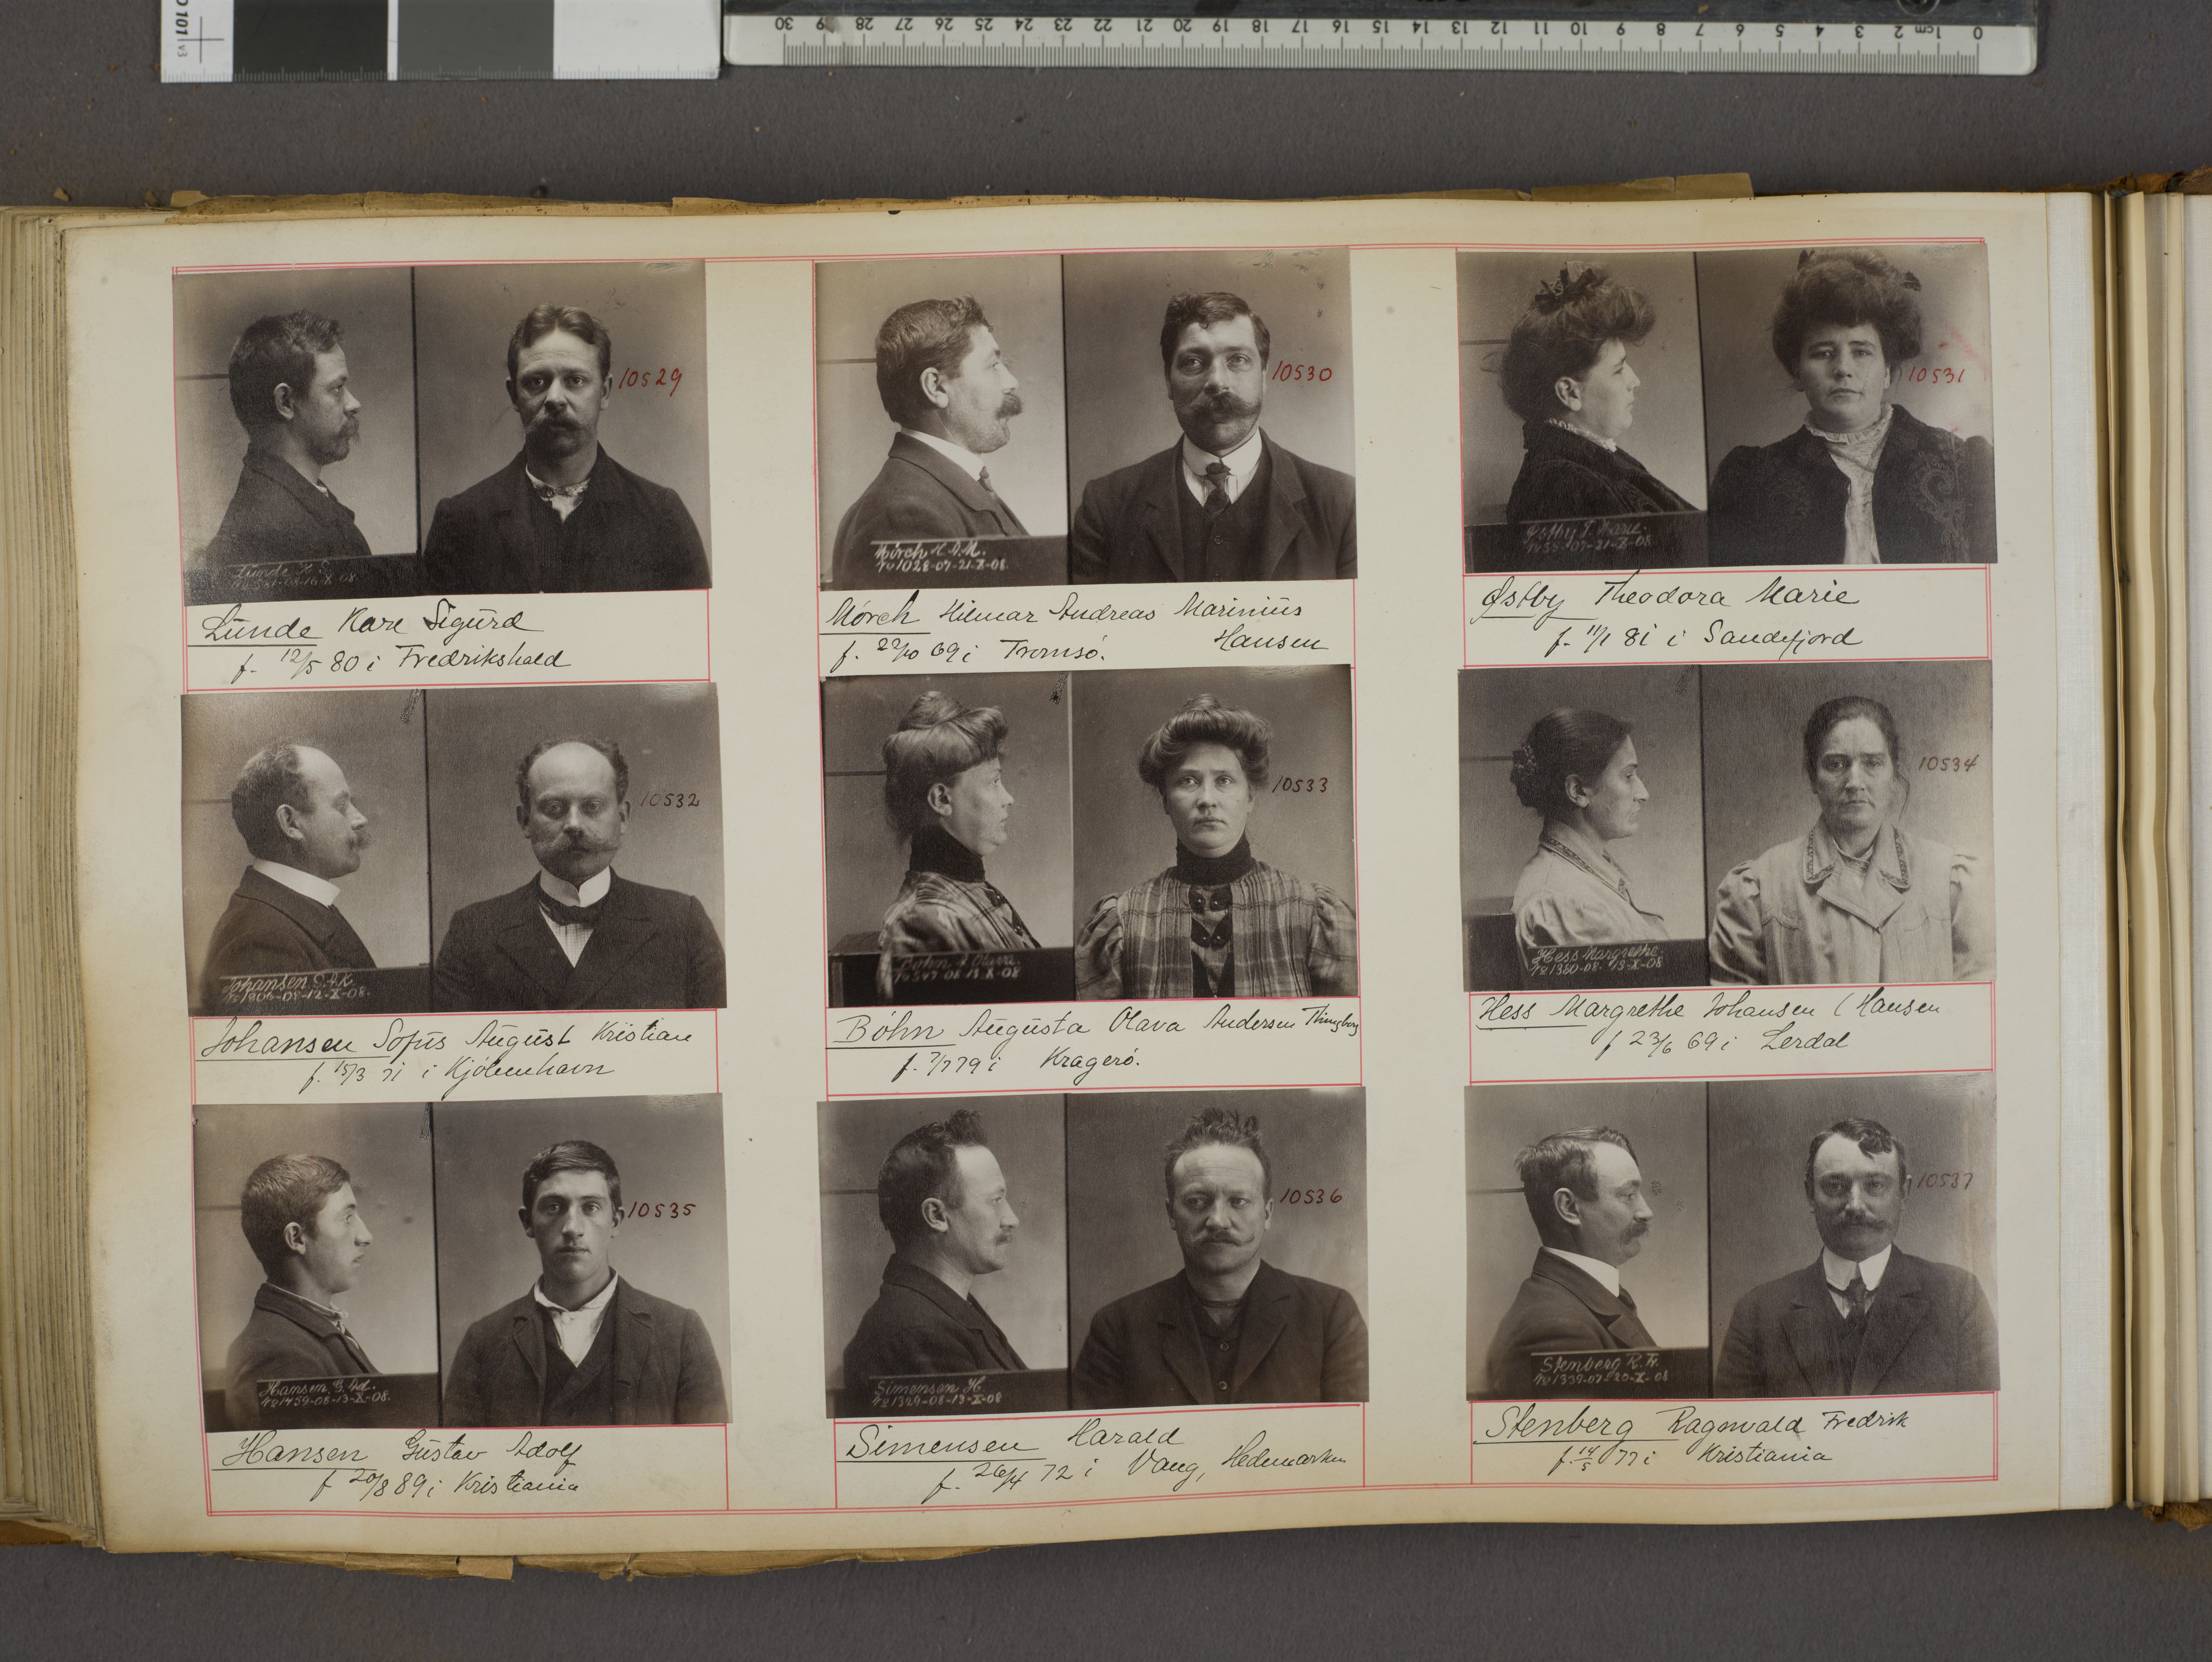 30 29 28 27 26 25 24 23 22 21 20 19 18 17 16 15 14 13 12 11 10 9 8 7 6 5 4 3 2 1cm 0
10529
Lunde K. S.
Lunde Kare Sigurd
f. 12/5 80 i Fredrikshald
10530
Mörch H. A. M.
No 1028-07-21-X-08.
Mörch Hilmar Andreas Marinius
Hansen
f. 22/10 69 i Tromsö.
10531
Østby T. Marie.
Østby Theodora Marie
f. 11/1 81 i Sandefjord
10532
Johansen S. A. K.
No 906-08-12-X-08.
Johansen Sofus August Kristian
f. 15/3 71 i Kjöbenhavn
10533
Bohn A Olava.
Böhn Augusta Olava Andersen
f. 7/7 79 i Kragerö.
10534
Hess Margrethe.
No 1360-08. 13-X-08
Hess Margrethe Johansen (Hansen
f 23/6 69 i Lerdal
10535
Hansen, G. Ad.
No 1459-08-13-X-08.
Hansen Gustav Adolf
f 20/8 89 i Kristiania
10536
Simensen H.
No 1329-08-13-X-08
Simensen Harald
f. 26/4 72 i Vang, Hedemarken
10537
Stenberg R. F.
No 1339-07-20-X-08
Stenberg Ragnvald Fredrik
f. 14/5 77 i Kristiania